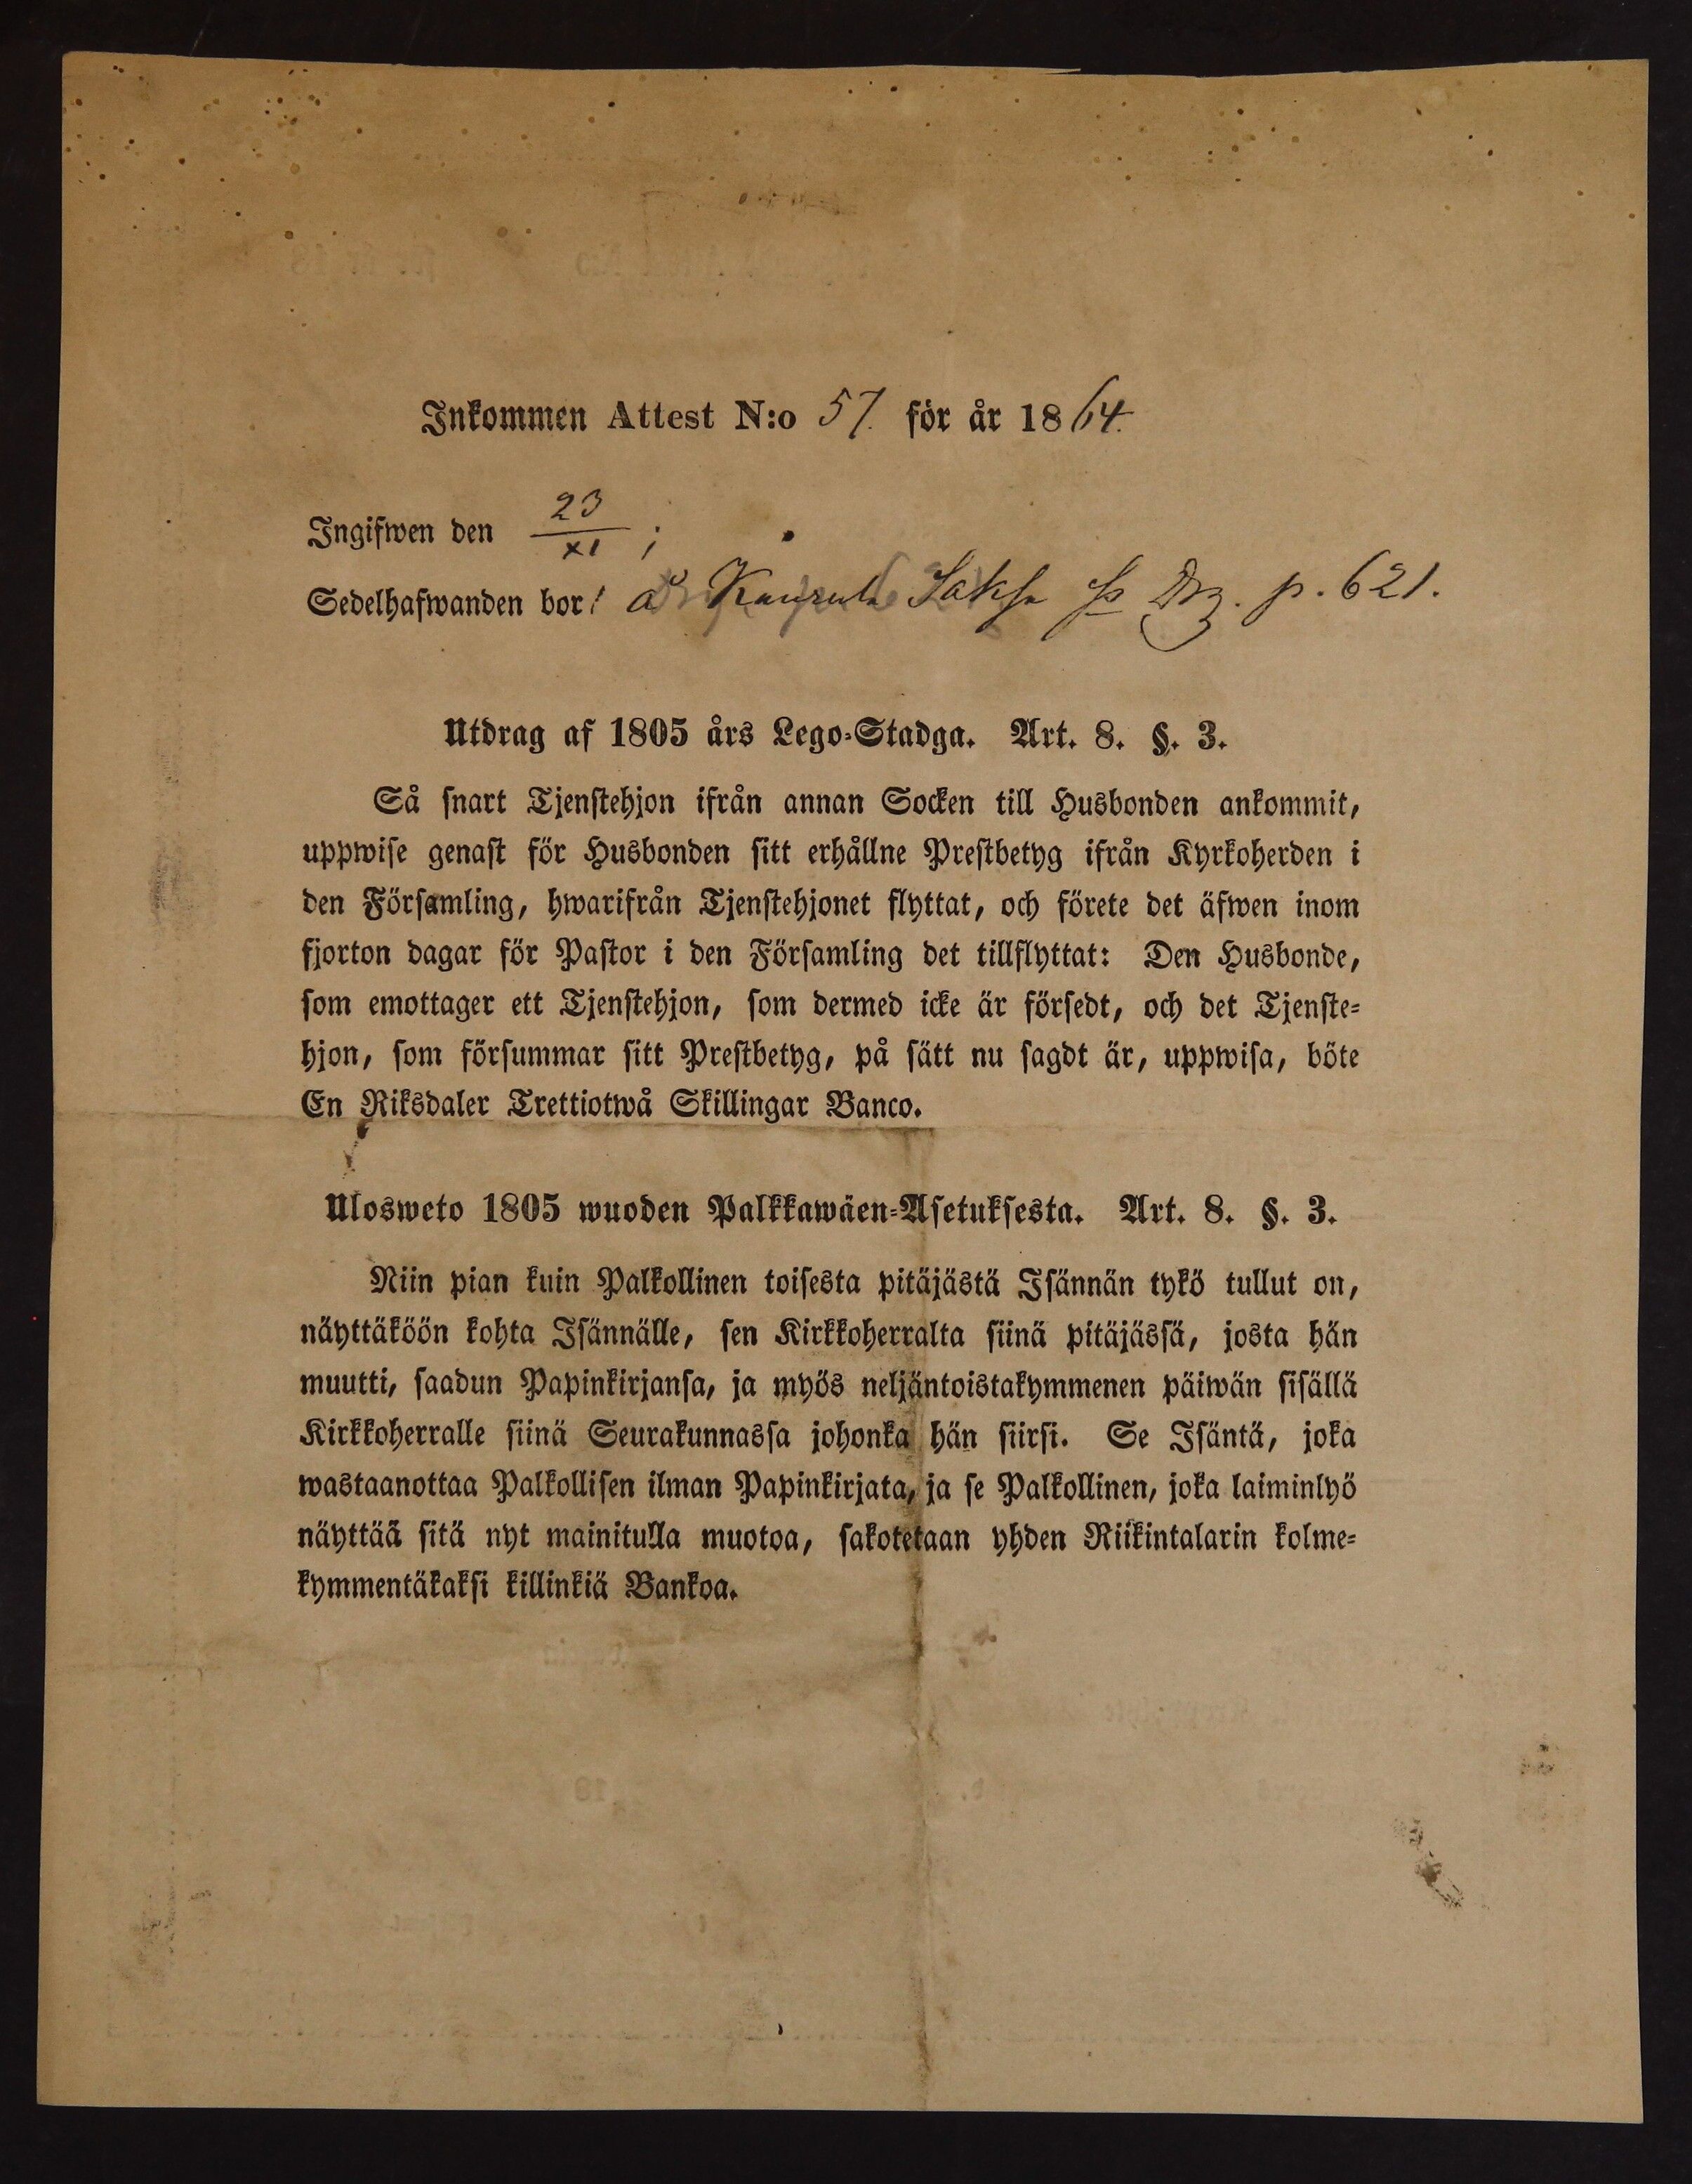 Inkommen Attest N:o 57. för år 1864.
Ingifwen den 23/XI ;
Sedelhafwanden bor: å Saksa p. 621.
Utdrag af 1805 års Lego-Stadga. Art. 8. §. 3.
Så snart Tjenstehjon ifrån annan Socken till Husbonden ankommit,
uppwise genast för Husbonden sitt erhållne Prestbetyg ifrån Kyrkoherden i
den Församling, hwarifrån Tjenstehjonet flyttat, och förete det äfwen inom
fjorton dagar för Pastor i den Församling det tillflyttat: Den Husbonde,
som emottager ett Tjenstehjon, som dermed icke är försedt, och det Tjenste-
hjon, som försummar sitt Prestbetyg, på sätt nu sagdt är, uppwisa, böte
En Riksdaler Trettiotwå Skillingar Banco.
Ulosweto 1805 wuoden Palkkawäen-Asetuksesta. Art. 8. §. 3.
Niin pian kuin Palkollinen toisesta pitäjästä Isännän tykö tullut on,
näyttäköön kohta Isännälle, sen Kirkkoherralta siinä pitäjässä, josta hän
muutti, saadun Papinkirjansa, ja myös neljäntoistakymmenen päiwän sisällä
Kirkkoherralle siinä Seurakunnassa johonka hän siirsi. Se Isäntä, joka
wastaanottaa Palkollisen ilman Papinkirjata, ja se Palkollinen, joka laiminlyö
näyttää sitä nyt mainitulla muotoa, sakotetaan yhden Riikintalarin kolme-
kymmentäkaksi killinkiä Bankoa.